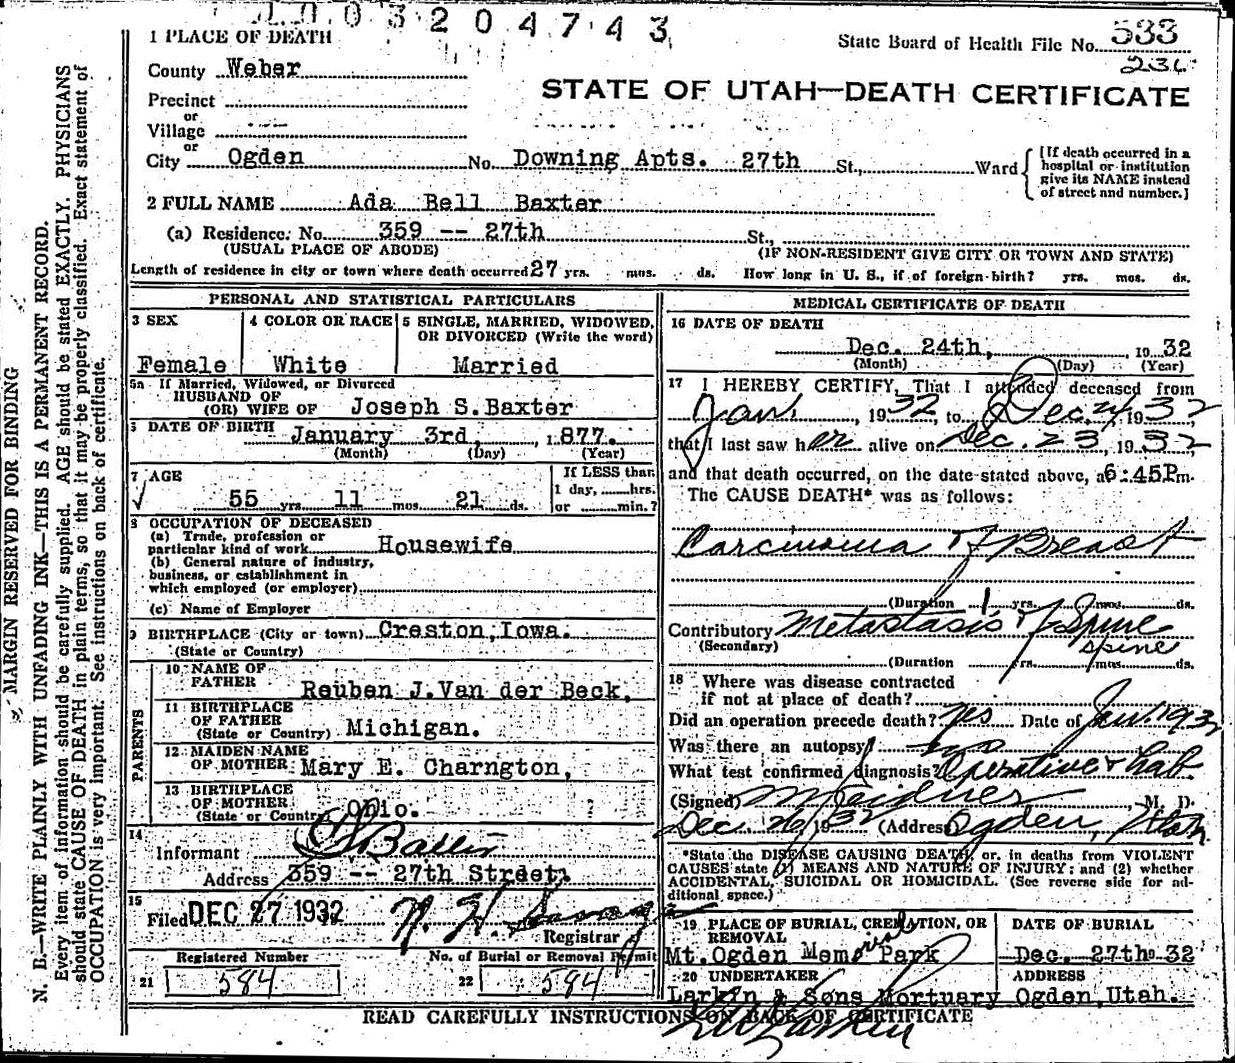 1 0 0 3 2 0 4 7 4 3
1 PLACE OF DEATH
State Board of Health File No. 533
236
County Weber
STATE OF UTAH—DEATH CERTIFICATE
Precinct
or
Village
or
City Ogden No. Downing Apts. 27th St., Ward
[If death occurred in a hospital or institution give its NAME instead of street and number.]
2 FULL NAME Ada Bell Baxter
(a) Residence: No. 359 -- 27th St.,
(USUAL PLACE OF ABODE) (IF NON-RESIDENT GIVE CITY OR TOWN AND STATE)
Length of residence in city or town where death occurred 27 yrs. mos. ds. How long in U. S., if of foreign-birth? yrs. mos. ds.
PERSONAL AND STATISTICAL PARTICULARS
3 SEX
Female
4 COLOR OR RACE
White
5 SINGLE, MARRIED, WIDOWED, OR DIVORCED (Write the word)
Married
5a If Married, Widowed, or Divorced
HUSBAND OF
(OR) WIFE OF Joseph S. Baxter
6 DATE OF BIRTH January 3rd, 1877.
(Month) (Day) (Year)
7 AGE
55 yrs. 11 mos. 21 ds.
If LESS than
1 day, hrs.
or min.?
8 OCCUPATION OF DECEASED
(a) Trade, profession or
particular kind of work Housewife
(b) General nature of industry,
business, or establishment in
which employed (or employer)
(c) Name of Employer
9 BIRTHPLACE (City or town) Creston, Iowa.
(State or Country)
PARENTS
10 NAME OF
FATHER Reuben J. Van der Beck,
11 BIRTHPLACE
OF FATHER
(State or Country) Michigan.
12 MAIDEN NAME
OF MOTHER Mary E. Charngton,
13 BIRTHPLACE
OF MOTHER
(State or Country) Ohio.
14
Informant
Address 359 -- 27th Street
15
Filed DEC 27 1932
Registrar
Registered Number No. of Burial or Removal Permit
21 584 22 584
MEDICAL CERTIFICATE OF DEATH
16 DATE OF DEATH
Dec. 24th, 1932
(Month) (Day) (Year)
17 I HEREBY CERTIFY, That I attended deceased from
Jan. , 1932, to Dec. 24, 1932
that I last saw her alive on Dec. 23, 1932
and that death occurred, on the date stated above, at 6:45P.m.
The CAUSE DEATH* was as follows:
Carcinoma of Breast
(Duration 1 yrs. mos. ds.
Contributory Metastasis of Spine
(Secondary) spine
(Duration yrs. mos. ds.
18 Where was disease contracted
if not at place of death?
Did an operation precede death? Yes Date of Jan. 1932
Was there an autopsy? no
What test confirmed diagnosis? Operative & Lab.
(Signed) , M. D.
Dec. 26, 1932 (Address) Ogden, Utah.
*State the DISEASE CAUSING DEATH, or, in deaths from VIOLENT
CAUSES state (1) MEANS AND NATURE OF INJURY; and (2) whether
ACCIDENTAL, SUICIDAL OR HOMICIDAL. (See reverse side for ad-
ditional space.)
19 PLACE OF BURIAL, CREMATION, OR REMOVAL
Mt. Ogden Memorial Park
DATE OF BURIAL
Dec. 27th 32
20 UNDERTAKER
Larkin & Sons Mortuary
ADDRESS
Ogden, Utah.
READ CAREFULLY INSTRUCTIONS ON BACK OF CERTIFICATE
MARGIN RESERVED FOR BINDING
N. B.—WRITE PLAINLY WITH UNFADING INK—THIS IS A PERMANENT RECORD.
Every item of information should be carefully supplied. AGE should be stated EXACTLY. PHYSICIANS
should state CAUSE OF DEATH in plain terms, so that it may be properly classified. Exact statement of
OCCUPATION is very important. See instructions on back of certificate.